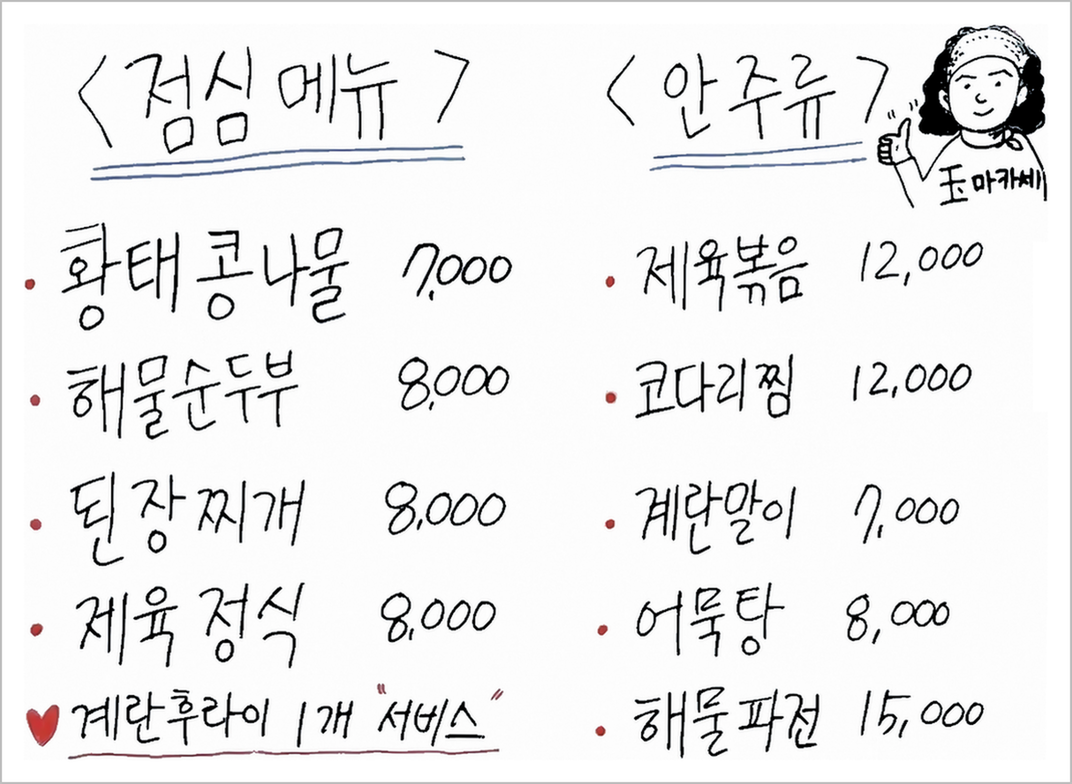 <점심 메뉴>
· 황태 콩나물 7,000
· 해물순두부 8,000
· 된장찌개 8,000
· 제육 정식 8,000
♥ 계란후라이 1개 "서비스"
<안주류>
玉마카세
· 제육볶음 12,000
· 코다리찜 12,000
· 계란말이 7,000
· 어묵탕 8,000
· 해물파전 15,000